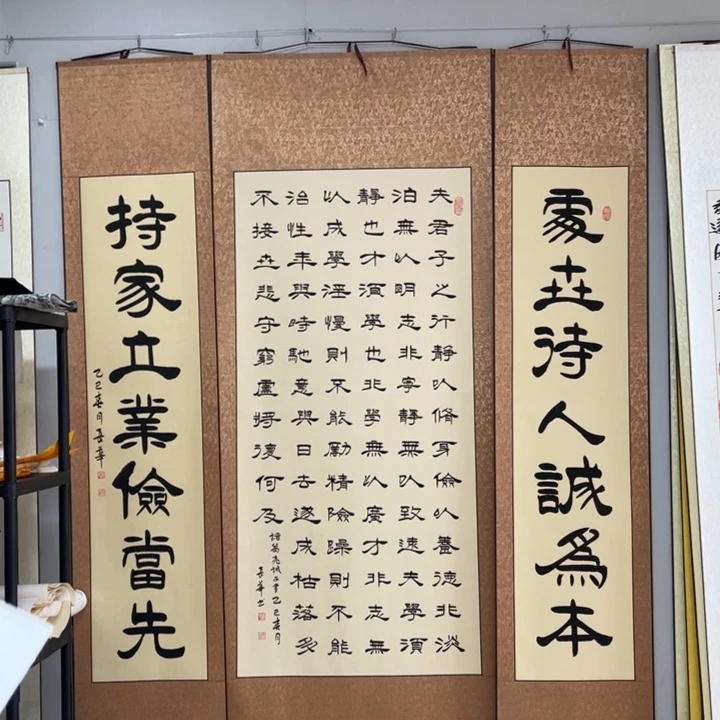 處世待人誠爲本
夫君子之行靜以脩身儉以養德非淡
泊無以明志非寧靜無以致遠夫學須
靜也才須學也非學無以廣才非志無
以成學淫慢則不能勵精險躁則不能
治性年與時馳意與日去遂成枯落多
不接世悲守窮廬將復何及
諸葛亮誡子書乙巳春月
持家立業儉當先
乙巳春月